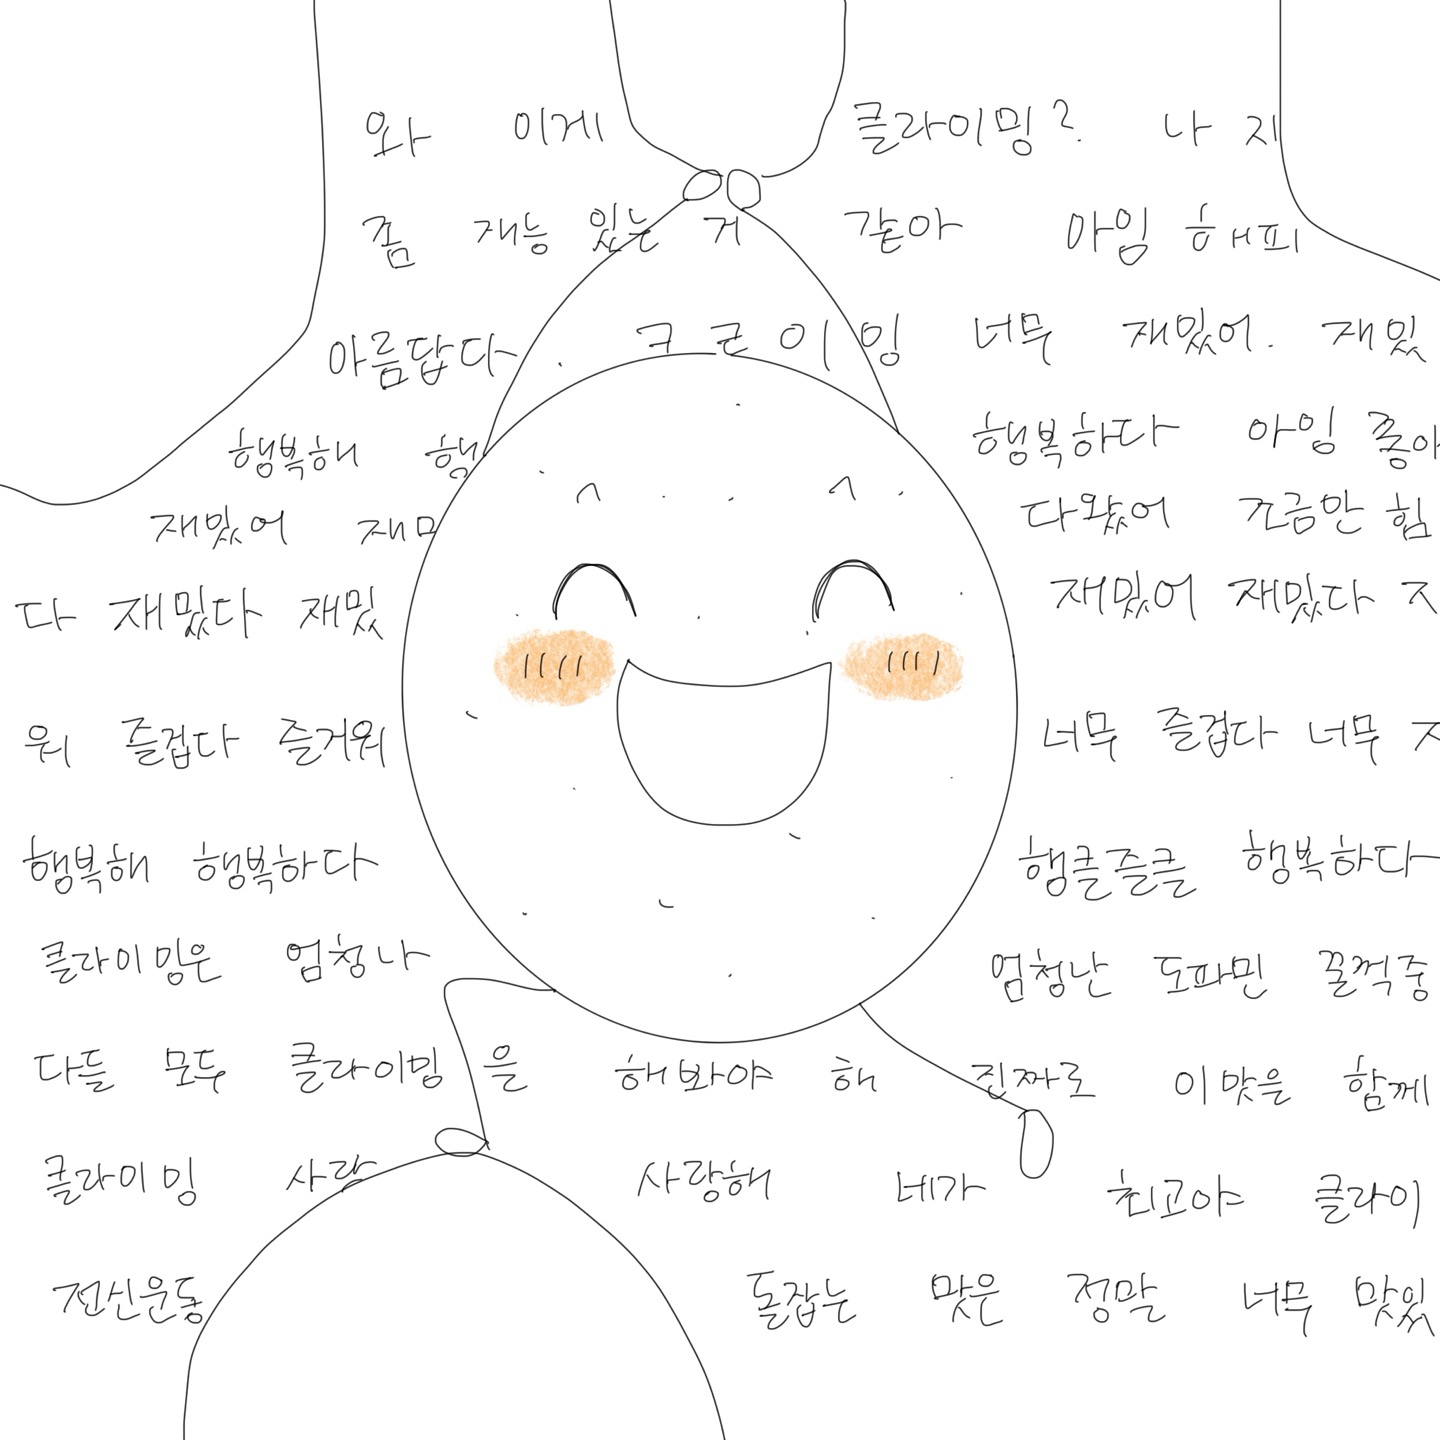 와 이게 클라이밍? 나 지
좀 재능 있는 거 같아 아임 해피
아름답다. 너무 재밌어. 재밌
행복해 행 행복하다 아임 좋아
재밌어 재 다왔어 조금만 힘
다 재밌다 재밌 재밌어 재밌다
워 즐겁다 즐거워 너무 즐겁다 너무
행복해 행복하다 행클즐클 행복하다
클라이밍은 엄청나 엄청난 도파민 꼴깍중
다들 모두 클라이밍을 해봐야 해 진짜로 이맛을 함께
클라이밍 사랑 사랑해 네가 최고야 클라이
전신운동 돌잡는 맛은 정말 너무 맛있